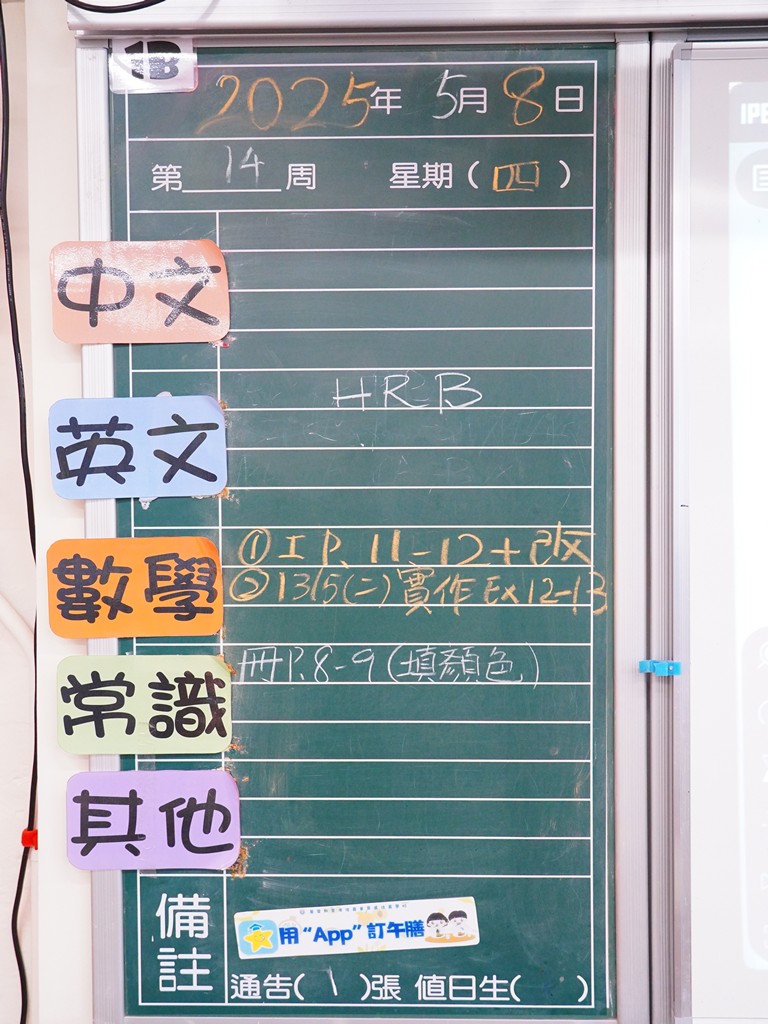 1B
2025年 5月 8日
第 14 周 星期(四)
中文
HRB
英文
①工 P. 11-12+改
數學 ②13/5(二) 實作 Ex 12-13
冊P.8-9(填顏色)
常識
其他
備註
用“App”訂午膳
通告( 1 )張 值日生( )
IPE